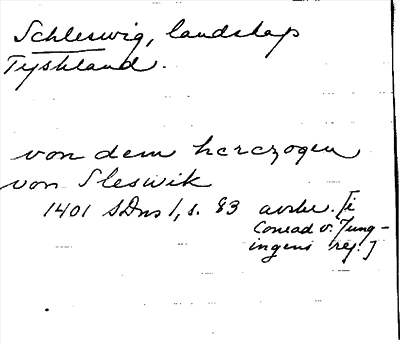 Schleswig, landskap
Tyskland.
von dem herczogen
von Sleswik
1401 SDns 1, s. 83 avskr. [i
Conrad v. Jung-
ingens reg.]